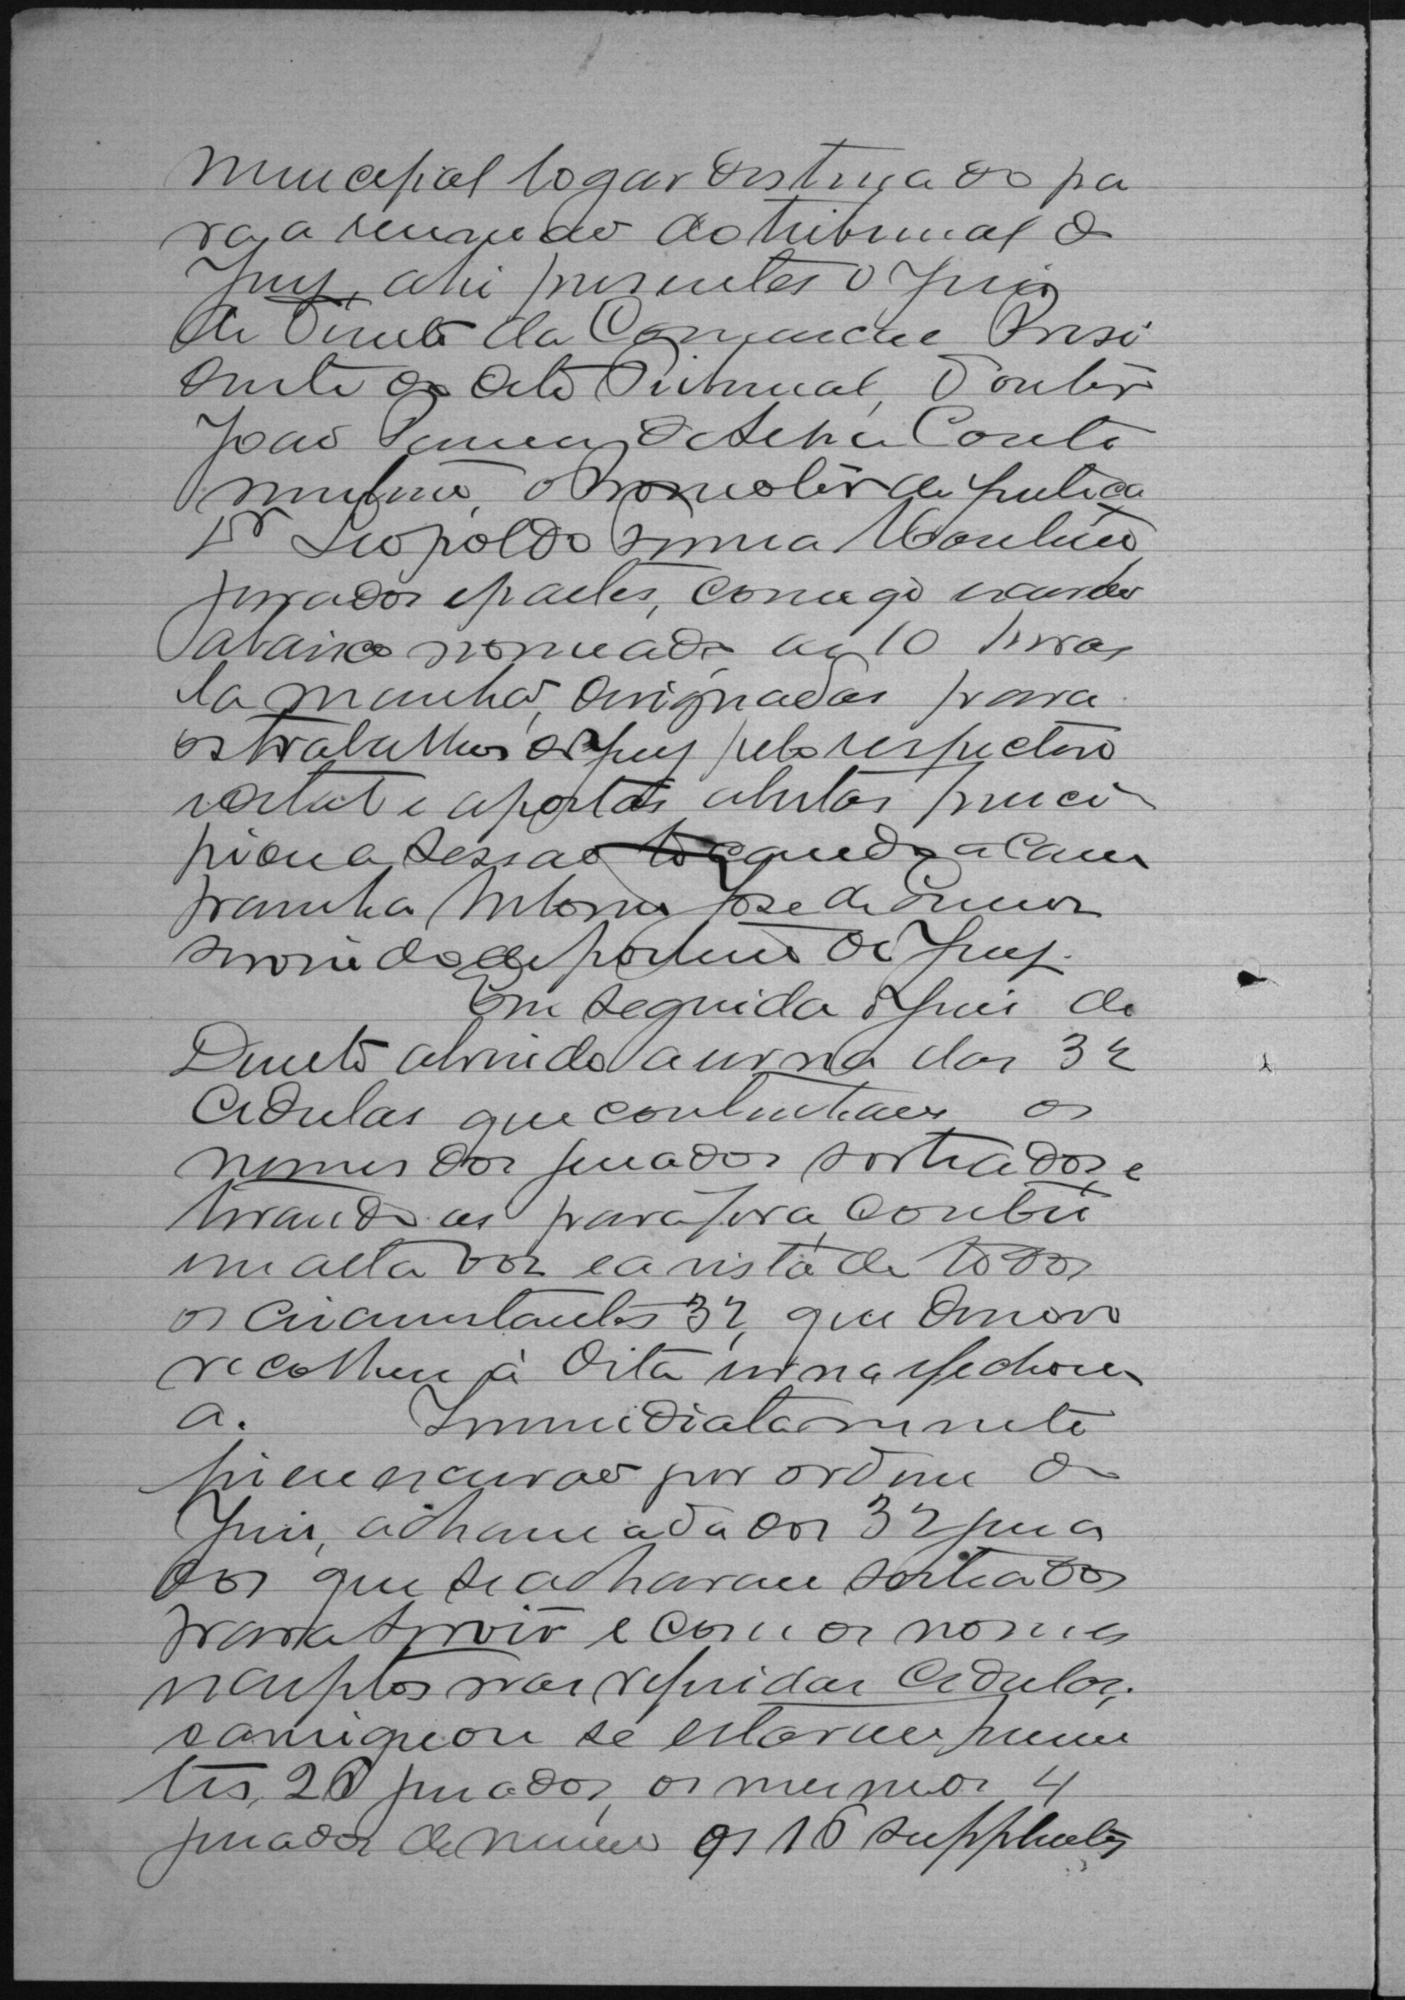 Municipal logar destinado pa
ra a reunião do tribunal do
Jury, ahi presentes o Juiz
de Direito da Comarca e Presi
dente do dito Tribunal, Doutor
João de Couto
o Promotor de justiça
Dr Leopoldo
jurados e partes, comigo escrivão
abaixo nomeado, as 10 horas
da manhã, designadas para
os trabalhos do jury pelo respectivo
edital e a portas abertas princi
piou a sessão tocando a cam
painha Antonio José de
servindo de porteiro do Jury.
Em seguida o Juiz de
Direito abrindo a urna das 32
cedulas que continham os
nomes dos jurados sorteados, e
tirando as para fora, contou
em alta voz e a vista de todos
os circumstantes 32, que de novo
recolheu à dita urna e fechou
a. Immediatamente
eu escrivão por ordem do
Juiz, a chamada dos 32 jura
dos que se acharam sorteados
para servir e com os nomes
escriptos nas referidas cedulas,
e averiguou se estarem presen
tes, 20 jurados, os mesmos 4
jurados de numero os 16 supplentes